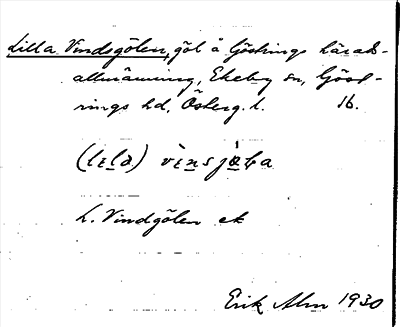 Lilla Vindsgölen, göl å Göstrings härads-
allmänning, Ekeby sn, Göst-
rings hd, Österg. l. 16.
(lɛla) vìnsjö̀ḷa
L. Vindgölen ek
Erik Alm 1930